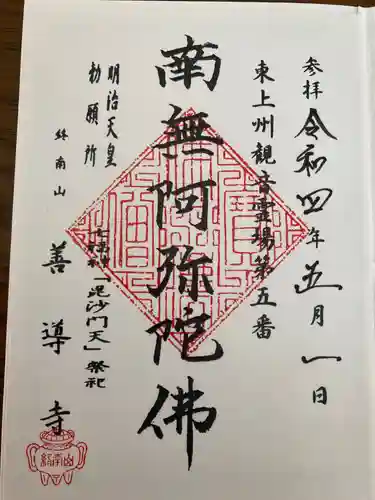 参拝 令和四年五月一日
東上州観音霊場第五番
南無阿弥陀佛
七福神「毘沙門天」祭祀
明治天皇
勅願所
終南山
善導寺